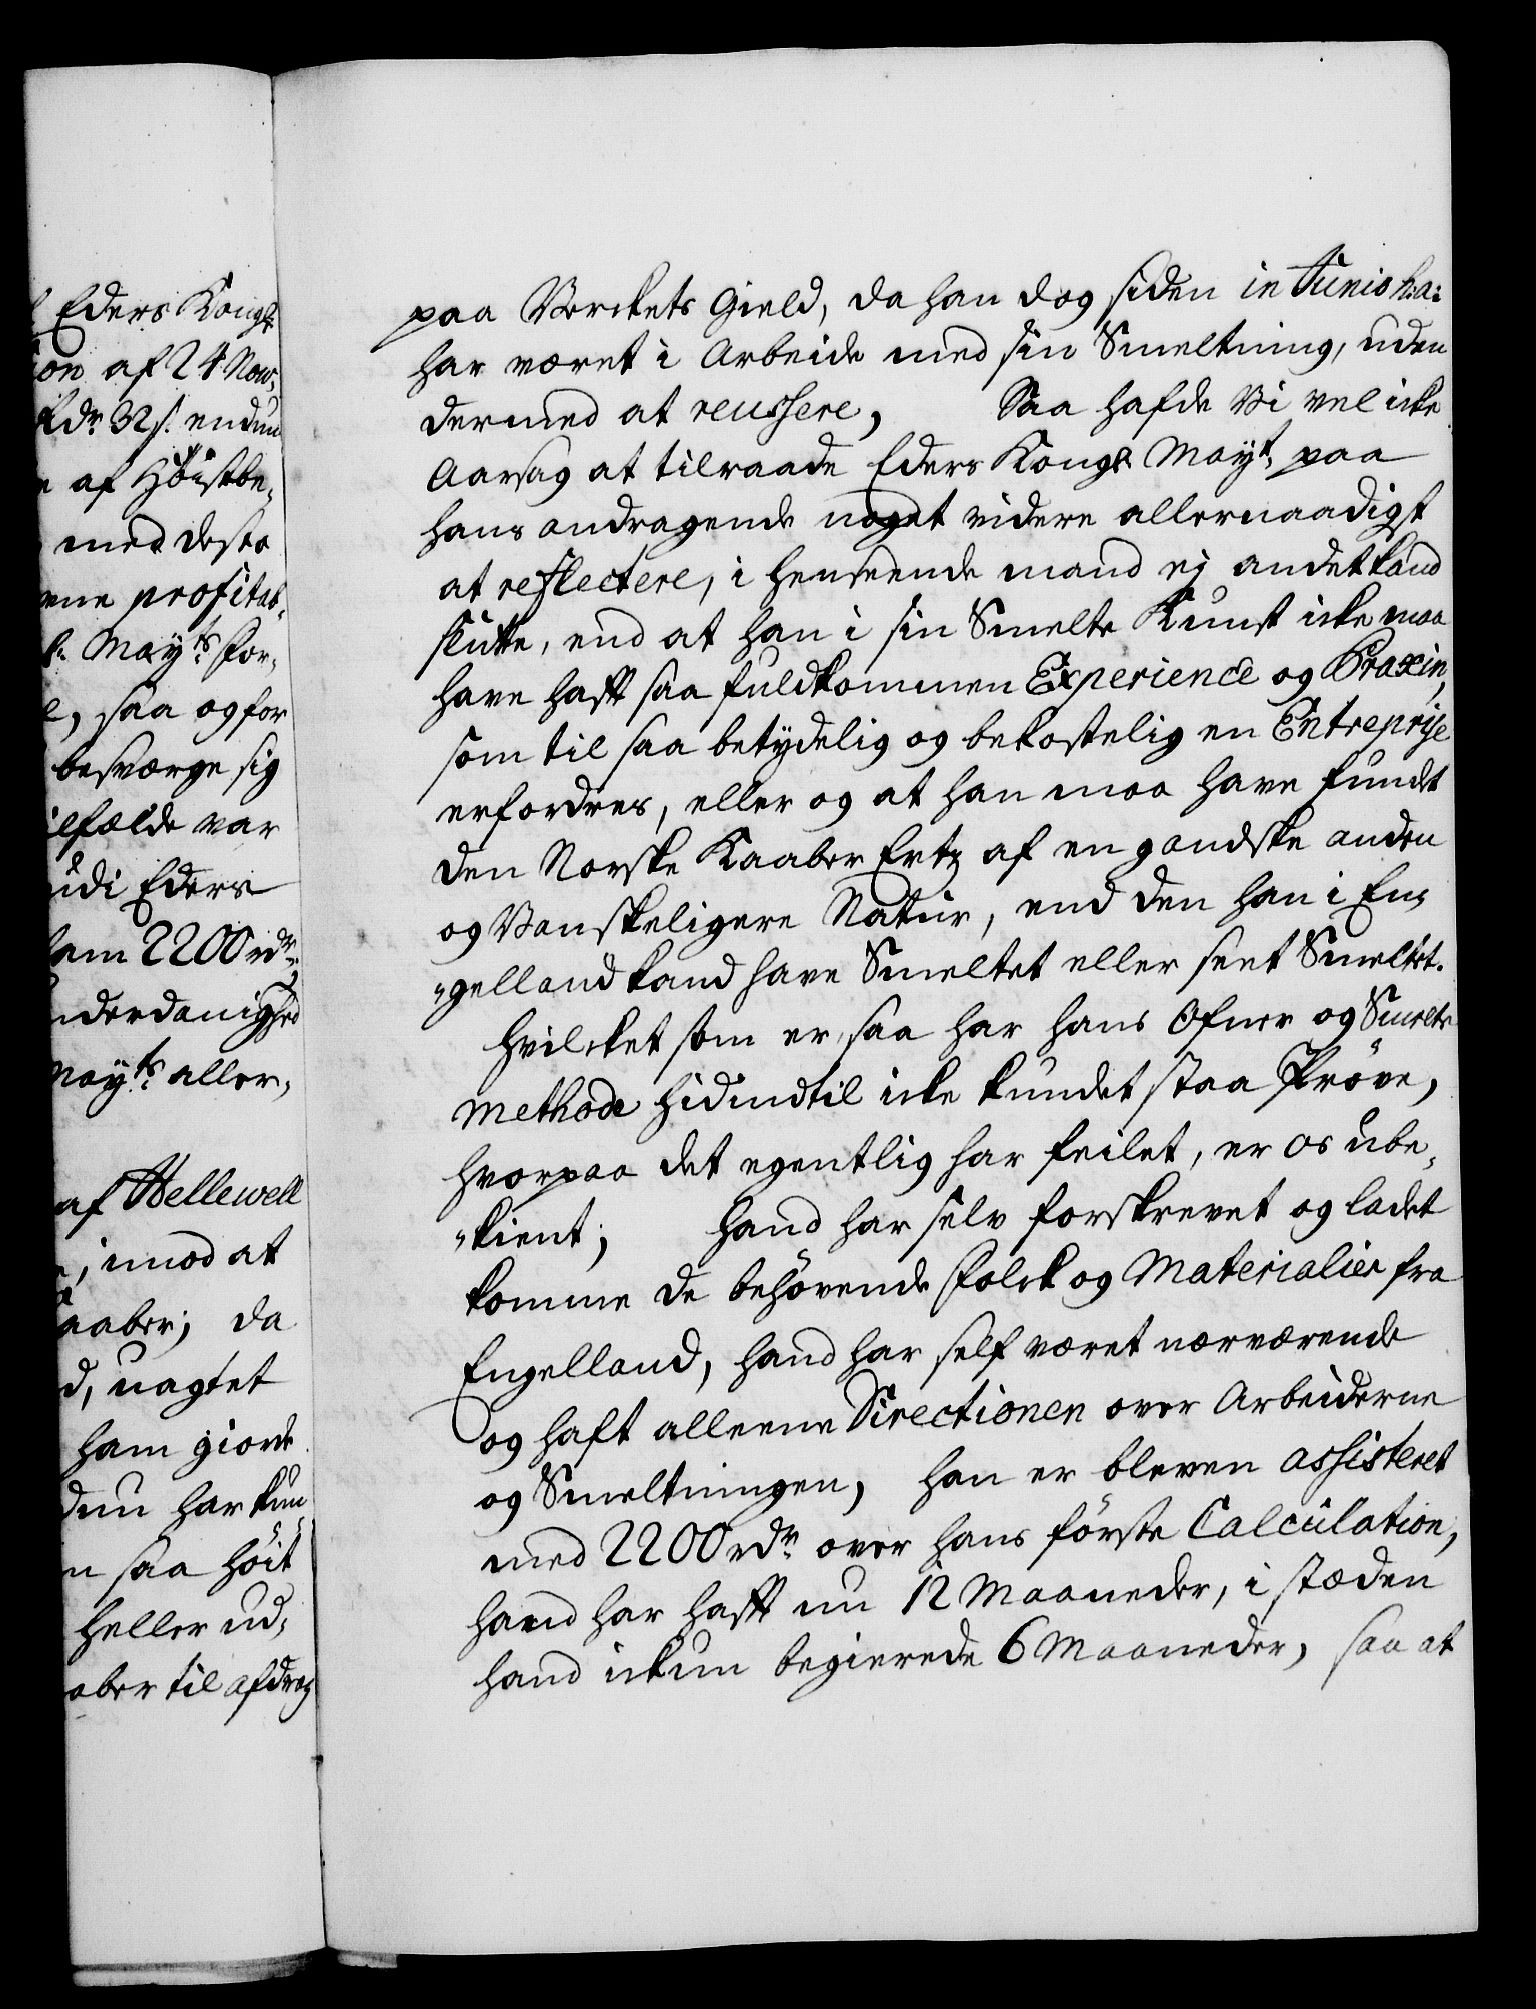 Eders Kongl.
ion af 24 Nov.
rdr. 32 s. endnu
af Höistbe-
med desto
profitab-
Mayts. for-
e, saa og for
besværge sig
ilfælde var
udi Eders
ham 2200 rdr.
nderdanighed
Mayts. aller-
af Hellewell
, imod at
aaber; da
d, uagtet
ham giorde
dnu har kun
n saa höit
heller ud-
aber til afdrag
paa Verckets Gield, da han dog siden in Junio h: a:
har været i Arbeide med sin Smeltning, uden
dermed at reussere, Saa hafde Vi vel icke
Aarsag at tilraade Eders Kongl. Mayt. paa
hans andragende noget videre allernaadigst
at reflectere, i henseende mand ej andet kand
slutte, end at han i sin Smelte Kunst icke maa
have hafft saa fuldkommen Experience og Praxin,
som til saa betydelig og bekostelig en Entreprise
erfordres, eller og at han maa have fundet
den Norske Kaaber Ertz af en gandske anden
og Vanskeligere Natur, end den han i En-
"gelland kand have Smeltet eller seet Smeltet.
Hvilcket som er, saa har hans Ofner og Smelte
Methode hidindtil icke kundet staa Pröve,
hvorpaa det egentlig har feilet, er os ube-
"kient; Hand har selv forskrevet og ladet
komme de behövende Folck og Materialier fra
Engelland, hand har self været nærværende
og haft alleene Directionen over Arbeiderne
og Smeltningen, han er bleven assisteret
med 2200 rdr. over hans förste Calculation,
hand har hafft nu 12 Maaneder, i stæden
hand ickun begierede 6 Maaneder, saa at